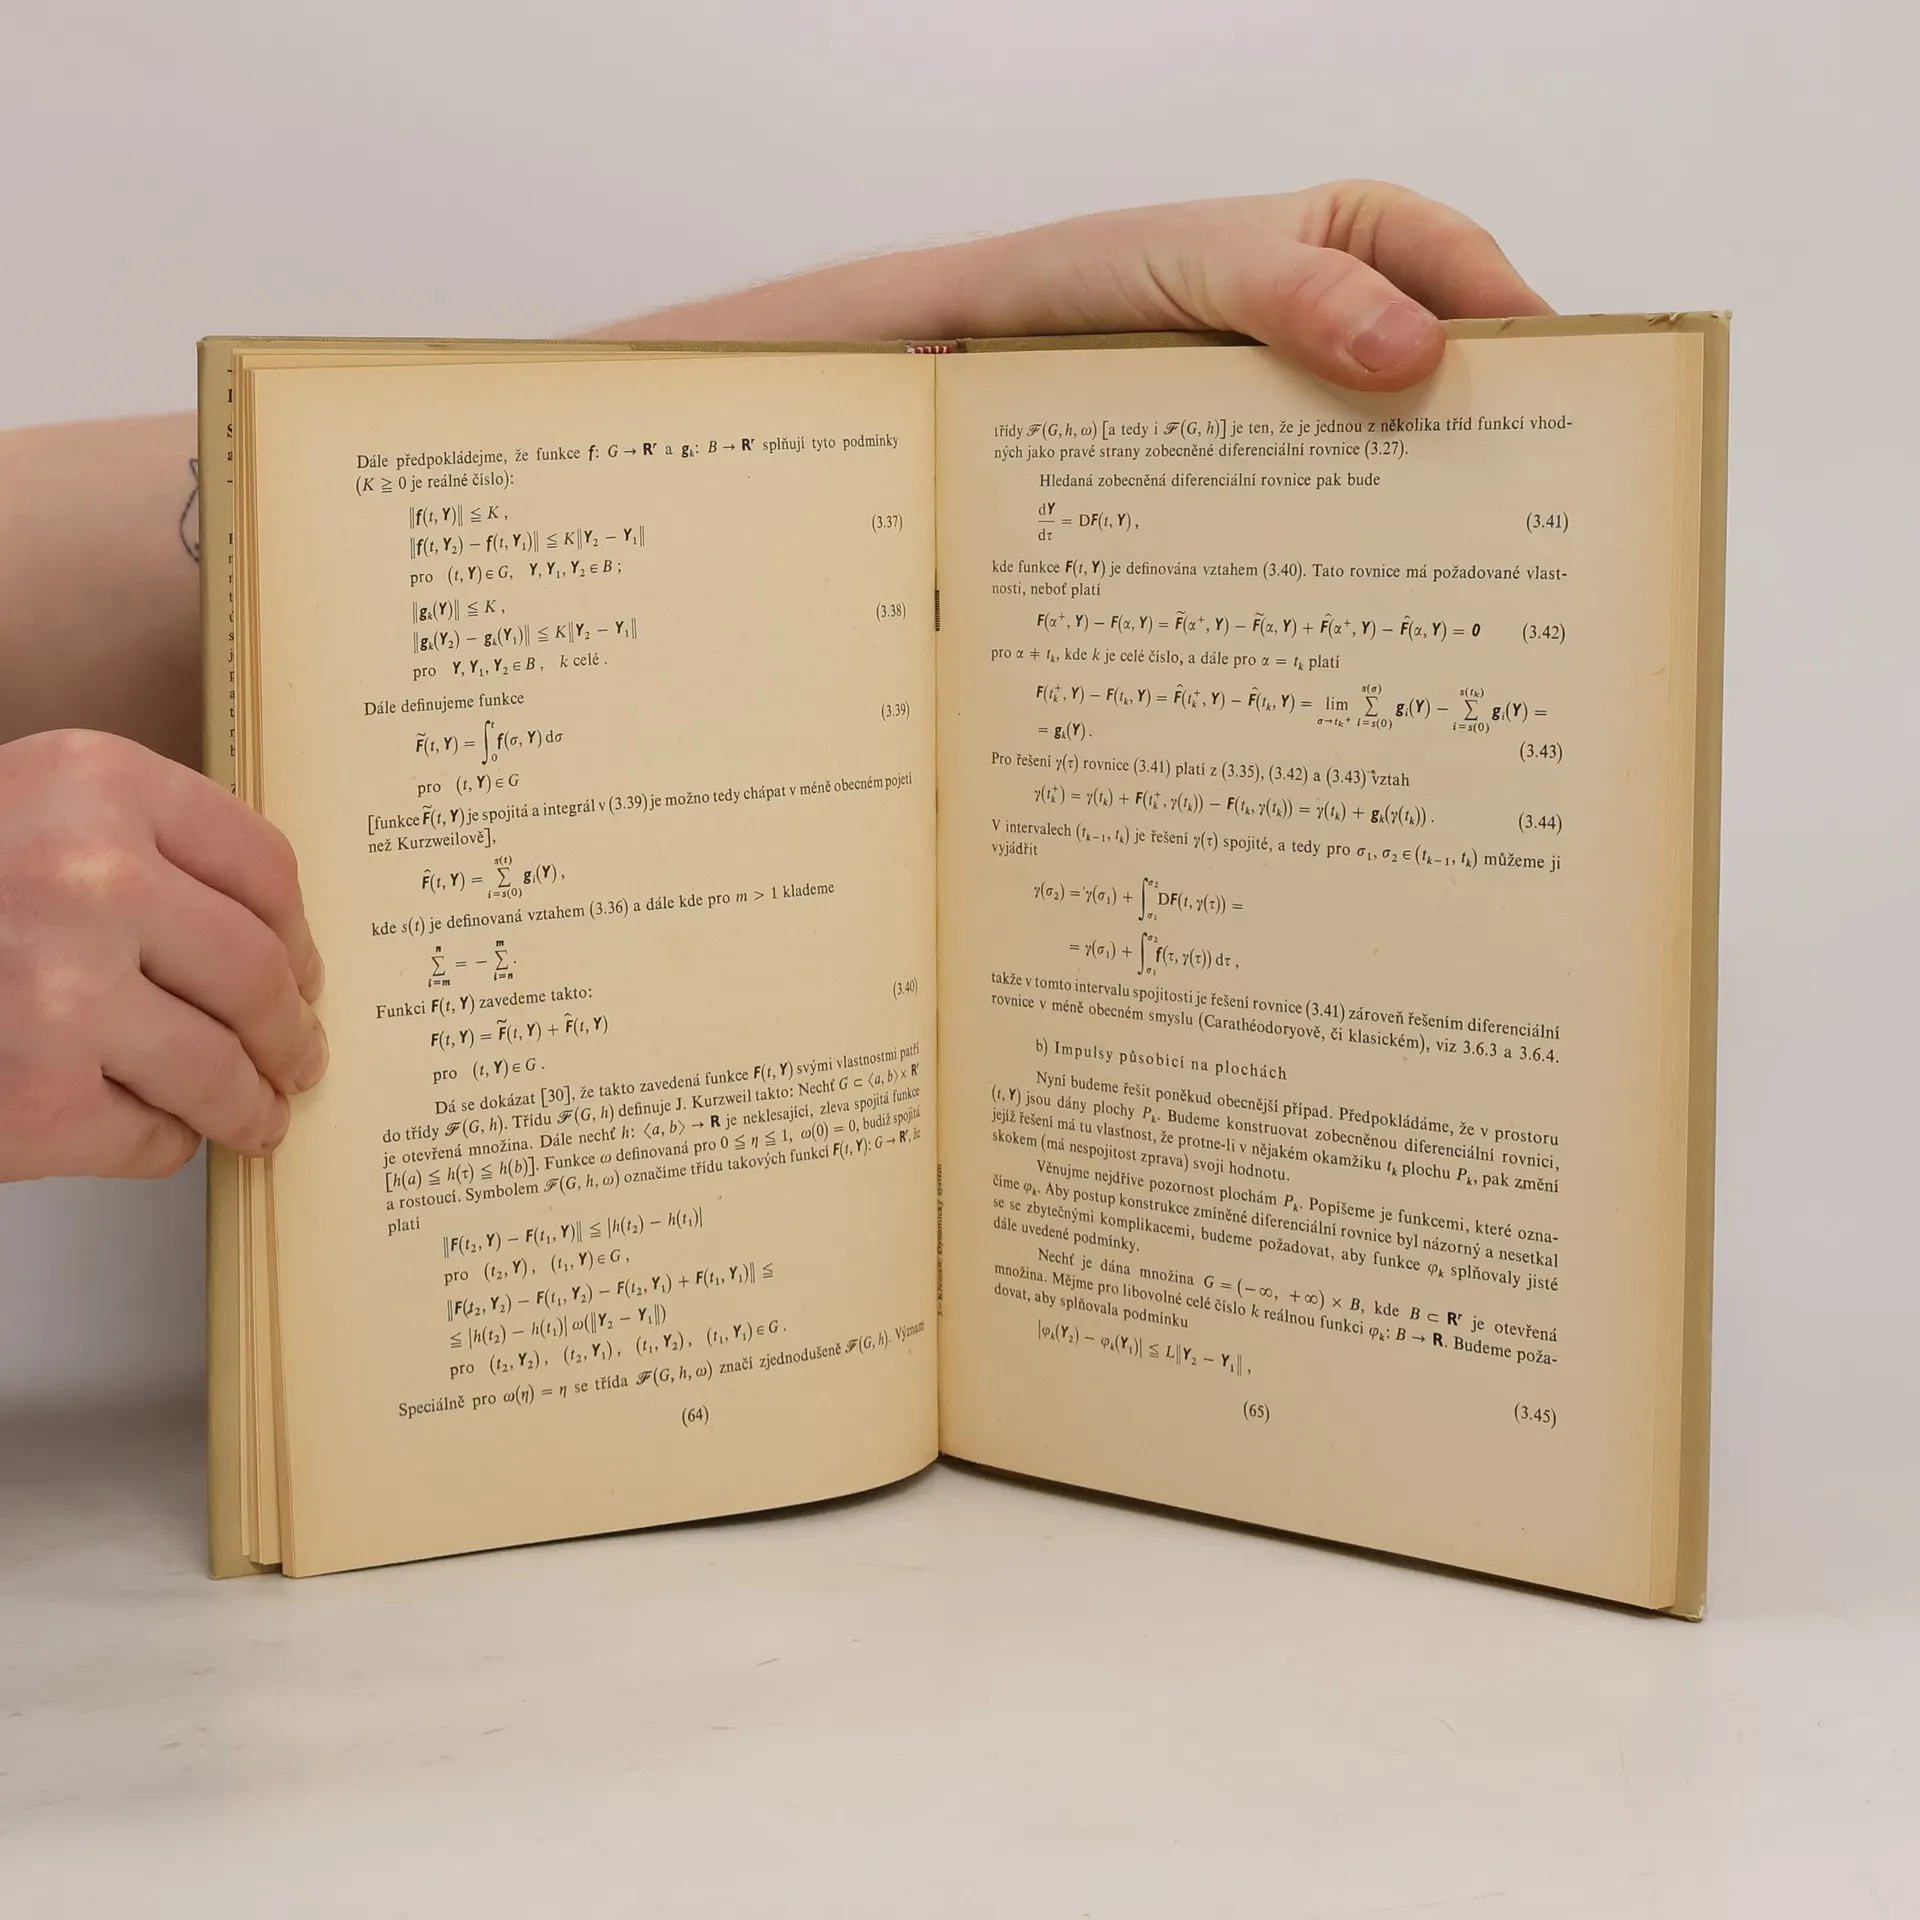 Dále předpokládejme, že funkce f: G → Rʳ a gₖ: B → Rʳ splňují tyto podmínky
(K ≧ 0 je reálné číslo):
‖f(t, Y)‖ ≦ K,
(3.37)
‖f(t, Y₂) − f(t, Y₁)‖ ≦ K‖Y₂ − Y₁‖
pro (t, Y) ∈ G, Y, Y₁, Y₂ ∈ B;
‖gₖ(Y)‖ ≦ K,
(3.38)
‖gₖ(Y₂) − gₖ(Y₁)‖ ≦ K‖Y₂ − Y₁‖
pro Y, Y₁, Y₂ ∈ B, k celé.
Dále definujeme funkce
(3.39)
F̃(t, Y) = ∫₀ᵗ f(σ, Y) dσ
pro (t, Y) ∈ G
[funkce F̃(t, Y) je spojitá a integrál v (3.39) je možno tedy chápat v méně obecném pojetí
než Kurzweilově],
F̂(t, Y) = ∑_{i=s(0)}^{s(t)} gᵢ(Y),
kde s(t) je definovaná vztahem (3.36) a dále kde pro m > 1 klademe
∑_{i=m}^{n} = − ∑_{i=n}^{m}.
Funkci F(t, Y) zavedeme takto:
(3.40)
F(t, Y) = F̃(t, Y) + F̂(t, Y)
pro (t, Y) ∈ G.
Dá se dokázat [30], že takto zavedená funkce F(t, Y) svými vlastnostmi patří
do třídy ℱ(G, h). Třídu ℱ(G, h) definuje J. Kurzweil takto: Nechť G ⊂ ⟨a, b⟩ × Rʳ
je otevřená množina. Dále nechť h: ⟨a, b⟩ → R je neklesající, zleva spojitá funkce
[h(a) ≦ h(τ) ≦ h(b)]. Funkce ω definovaná pro 0 ≦ η ≦ 1, ω(0) = 0, budiž spojitá
a rostoucí. Symbolem ℱ(G, h, ω) označíme třídu takových funkcí F(t, Y): G → Rʳ, že
platí
‖F(t₂, Y) − F(t₁, Y)‖ ≦ |h(t₂) − h(t₁)|
pro (t₂, Y), (t₁, Y) ∈ G,
‖F(t₂, Y₂) − F(t₁, Y₂) − F(t₂, Y₁) + F(t₁, Y₁)‖ ≦
≦ |h(t₂) − h(t₁)| ω(‖Y₂ − Y₁‖)
pro (t₂, Y₂), (t₂, Y₁), (t₁, Y₂), (t₁, Y₁) ∈ G.
Speciálně pro ω(η) = η se třída ℱ(G, h, ω) značí zjednodušeně ℱ(G, h). Význam
(64)
třídy ℱ(G, h, ω) [a tedy i ℱ(G, h)] je ten, že je jednou z několika tříd funkcí vhod-
ných jako pravé strany zobecněné diferenciální rovnice (3.27).
Hledaná zobecněná diferenciální rovnice pak bude
dY/dτ = DF(t, Y), (3.41)
kde funkce F(t, Y) je definována vztahem (3.40). Tato rovnice má požadované vlast-
nosti, neboť platí
F(α⁺, Y) − F(α, Y) = F̃(α⁺, Y) − F̃(α, Y) + F̂(α⁺, Y) − F̂(α, Y) = 0 (3.42)
pro α ≠ tₖ, kde k je celé číslo, a dále pro α = tₖ platí
F(tₖ⁺, Y) − F(tₖ, Y) = F̂(tₖ⁺, Y) − F̂(tₖ, Y) = lim_{σ→tₖ⁺} ∑_{i=s(0)}^{s(σ)} gᵢ(Y) − ∑_{i=s(0)}^{s(tₖ)} gᵢ(Y) =
= gₖ(Y).
(3.43)
Pro řešení γ(τ) rovnice (3.41) platí z (3.35), (3.42) a (3.43) vztah
γ(tₖ⁺) = γ(tₖ) + F(tₖ⁺, γ(tₖ)) − F(tₖ, γ(tₖ)) = γ(tₖ) + gₖ(γ(tₖ)). (3.44)
V intervalech (tₖ₋₁, tₖ) je řešení γ(τ) spojité, a tedy pro σ₁, σ₂ ∈ (tₖ₋₁, tₖ) můžeme ji
vyjádřit
γ(σ₂) = γ(σ₁) + ∫_{σ₁}^{σ₂} DF(t, γ(τ)) =
= γ(σ₁) + ∫_{σ₁}^{σ₂} f(τ, γ(τ)) dτ,
takže v tomto intervalu spojitosti je řešení rovnice (3.41) zároveň řešením diferenciální
rovnice v méně obecném smyslu (Carathéodoryově, či klasickém), viz 3.6.3 a 3.6.4.
b) Impulsy působící na plochách
Nyní budeme řešit poněkud obecnější případ. Předpokládáme, že v prostoru
(t, Y) jsou dány plochy Pₖ. Budeme konstruovat zobecněnou diferenciální rovnici,
jejíž řešení má tu vlastnost, že protne-li v nějakém okamžiku tₖ plochu Pₖ, pak změní
skokem (má nespojitost zprava) svoji hodnotu.
Věnujme nejdříve pozornost plochám Pₖ. Popíšeme je funkcemi, které ozna-
číme φₖ. Aby postup konstrukce zmíněné diferenciální rovnice byl názorný a nesetkal
se se zbytečnými komplikacemi, budeme požadovat, aby funkce φₖ splňovaly jisté
dále uvedené podmínky.
Nechť je dána množina G = (−∞, +∞) × B, kde B ⊂ Rʳ je otevřená
množina. Mějme pro libovolné celé číslo k reálnou funkci φₖ: B → R. Budeme poža-
dovat, aby splňovala podmínku
|φₖ(Y₂) − φₖ(Y₁)| ≦ L‖Y₂ − Y₁‖,
(3.45)
(65)